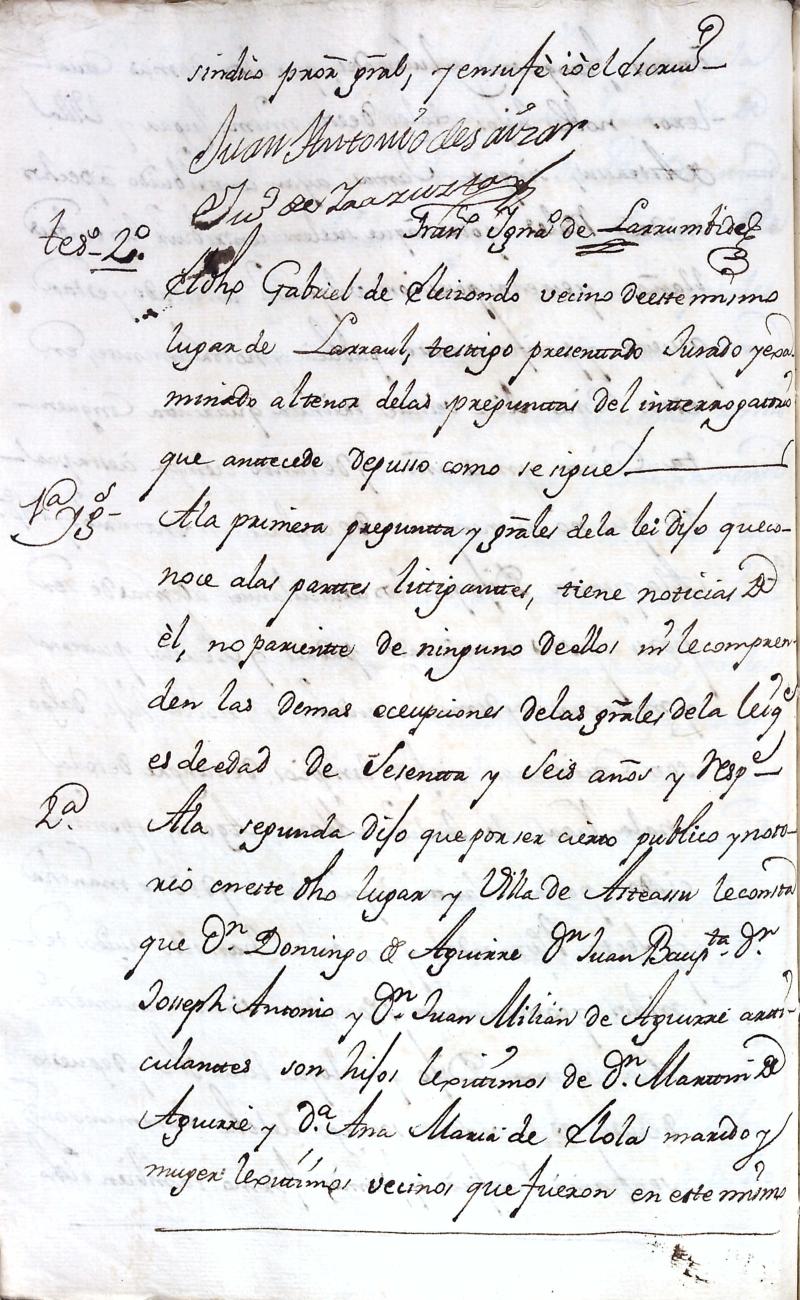 sindico pror gral, y en su fè io el escriu.º
Juan Antonio de Saizar
Fran.co Ygna.º de Larrumbide
tes.º 2.º
El dho Gabriel de Eleizondo vecino de este mismo
lugar de Larraul, testigo presenttado Jurado y exa-
minado al tenor de las pregunttas del intterrogattorio
que anttecede depusso como se sigue
1ª y gs
A la primera preguntta y grãles de la lei dijo que co-
noce a las parttes littiganttes, tiene noticias de
èl, no parientte de ninguno de ellos ni le compren-
den las demas ecepciones de las grãles de la lei q.e
es de edad de Sesentta y Seis años y resp.e
2ª.
A la segunda dijo que por ser cierto publico y noto-
rio en este dho lugar y Villa de Asteassu le consta
que Dn. Domingo de Aguirre Dn Juan Baup.ta Dn.
Joseph Antonio y Dn. Juan Milián de Aguirre artti-
culanttes son hijos lexittimos de Dn. Marttin de
Aguirre y D.ª Ana Maria de Elola marido y
muger lexittimos vecinos que fueron en este mismo